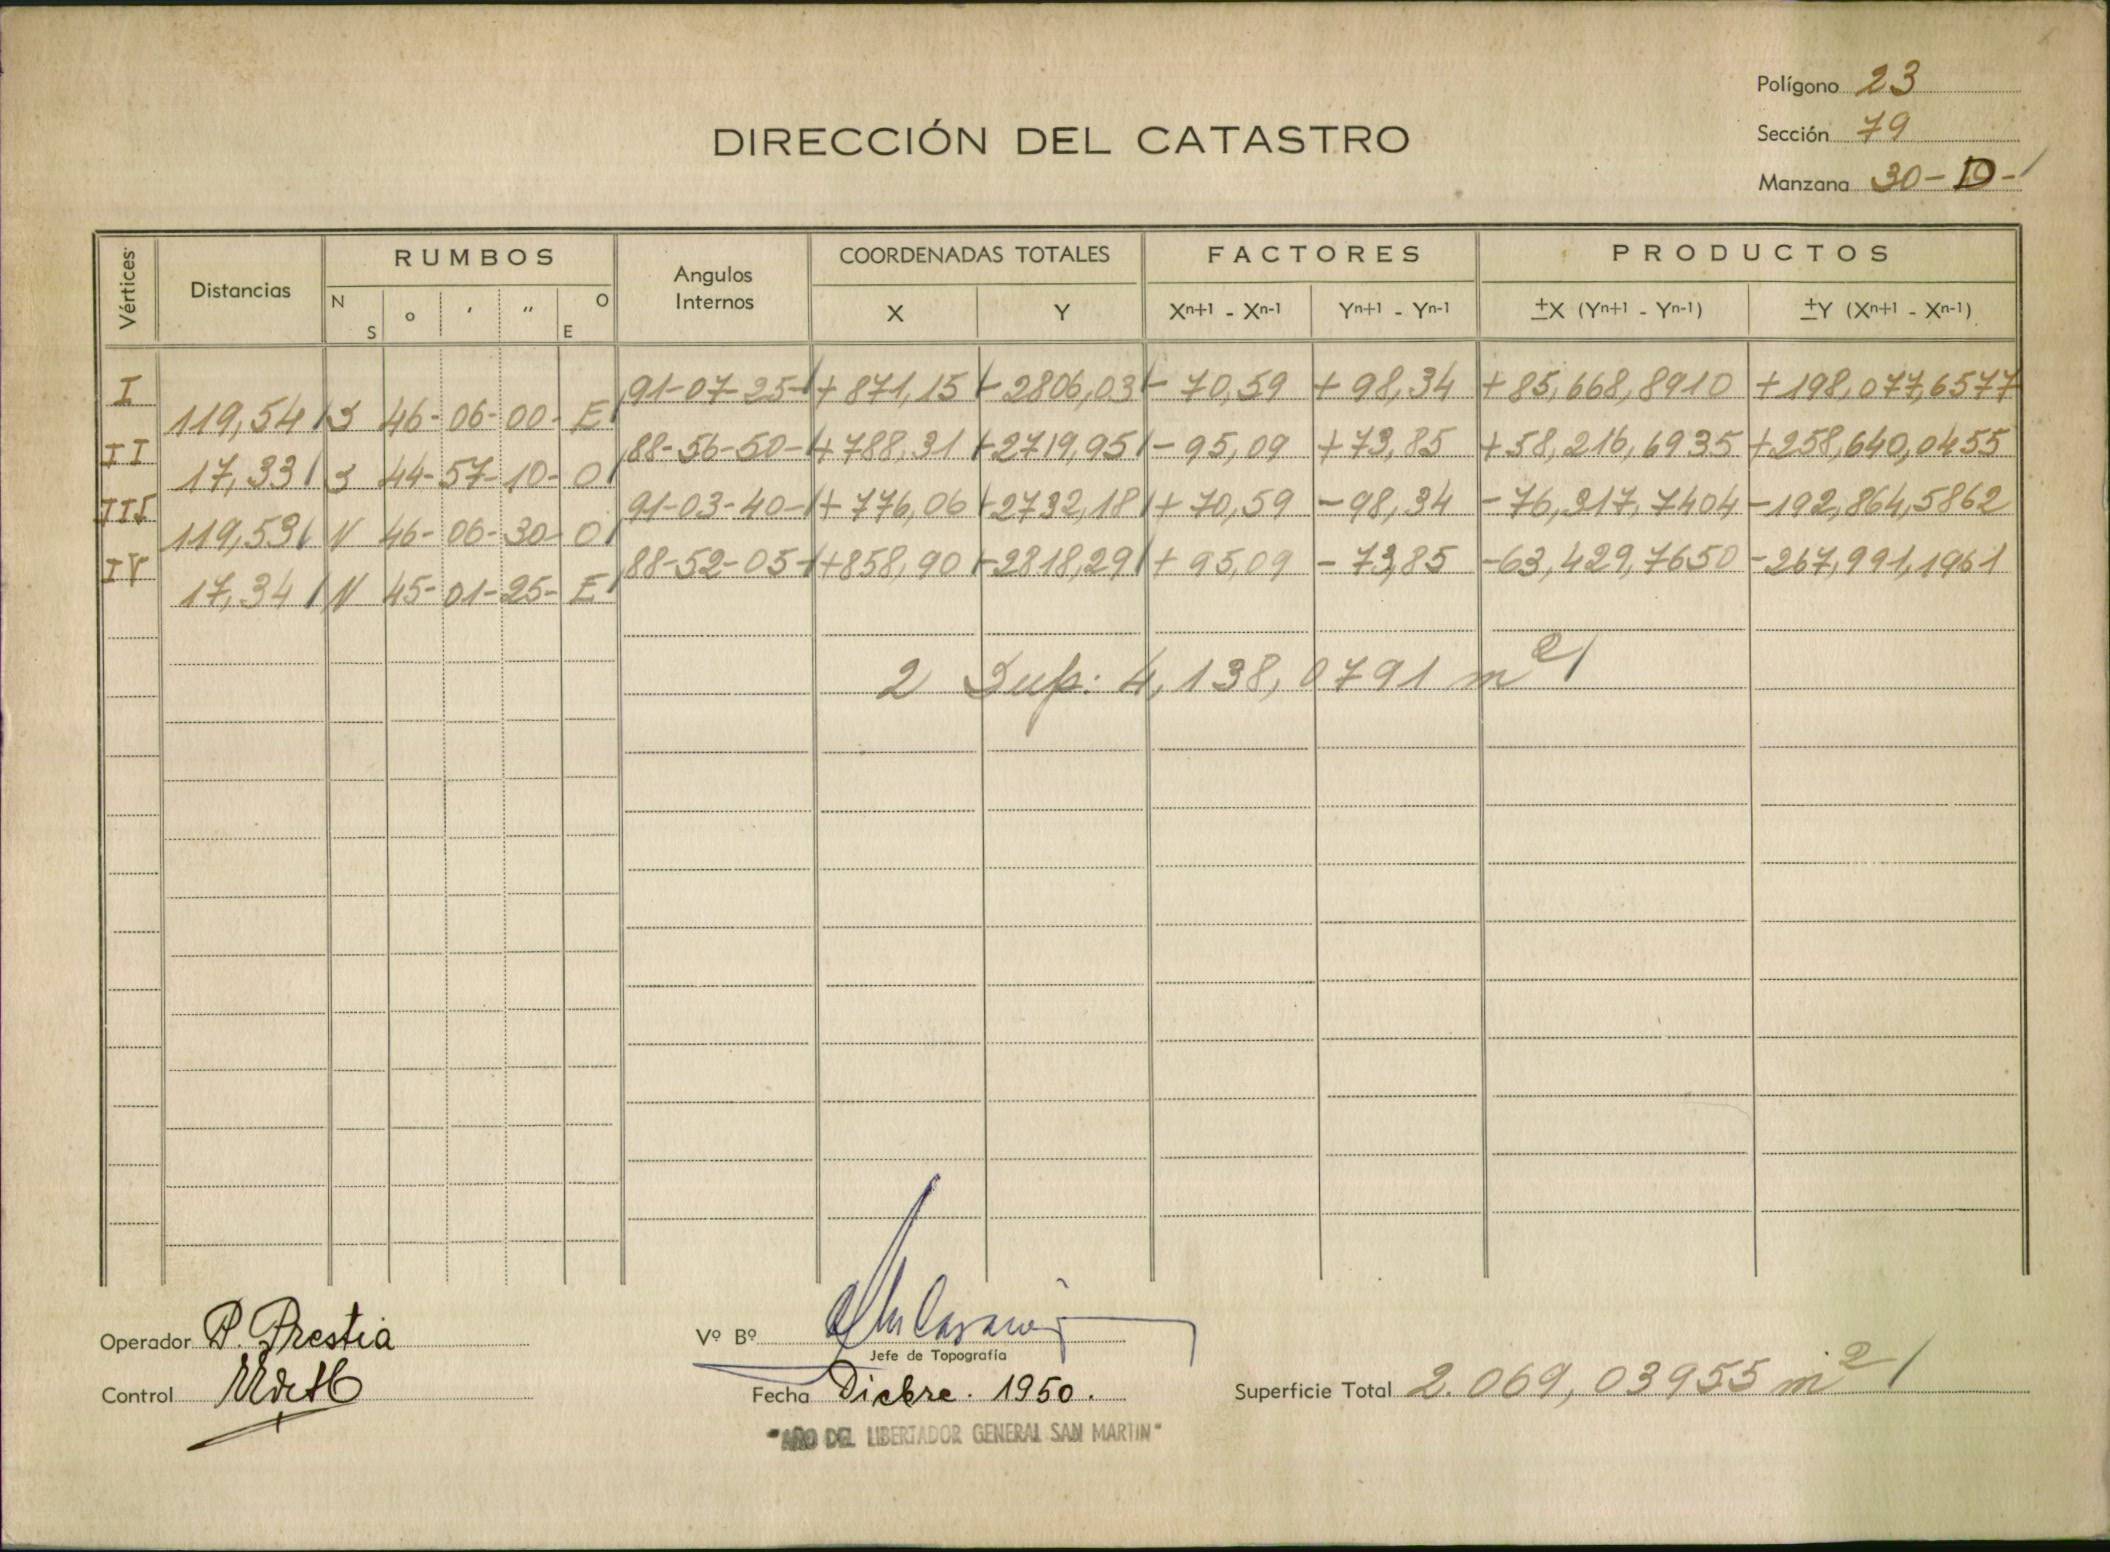 Polígono 23
DIRECCIÓN DEL CATASTRO
Sección 79
Manzana 30-D-
Vértices Distancias RUMBOS Angulos Internos COORDENADAS TOTALES FACTORES PRODUCTOS
N S o ' " O E X Y Xn+1 - Xn-1 Yn+1 - Yn-1 ±X (Yn+1 - Yn-1) ±Y (Xn+1 - Xn-1)
I 91-07-25- +871,15 -2806,03 -70,59 +98,34 +85,668,8910 +198,077,6577
119,54 S 46-06-00- E
II 88-56-50- +788,31 -2719,95 -95,09 +73,85 +58,216,6935 +258,640,0455
17,33 S 44-57-10- O
III 91-03-40- +776,06 -2732,18 +70,59 -98,34 -76,317,7404 -192,864,5862
119,53 N 46-06-30- O
IV 88-52-05- +858,90 -2818,29 +95,09 -73,85 -63,429,7650 -267,991,1961
17,34 N 45-01-25- E
2 Sup: 4,138,0791 m2
Operador P. Prestia
Vº Bº
Jefe de Topografía
Control
Fecha Dicbre. 1950.
Superficie Total 2.069,03955 m2
"AÑO DEL LIBERTADOR GENERAL SAN MARTIN"